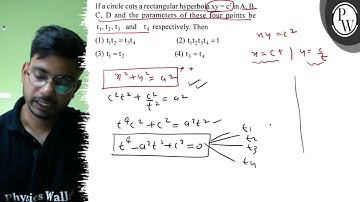 If a circle cuts a rectangular hyperbola xy = c² in A, B,
C, D and the parameters of these four points be
t₁, t₂, t₃ and t₄ respectively. Then
(1) t₁t₂ = t₃t₄ (2) t₁t₂t₃t₄ = 1
(3) t₁ = t₂ (4) t₃ = t₄
xy = c²
x = ct, y = c/t
x² + y² = a²
c²t² + c²/t² = a²
t⁴c² + c² = a²t²
t⁴ - a²t² + c² = 0
t₁
t₂
t₃
t₄
PW
Physics Wallah